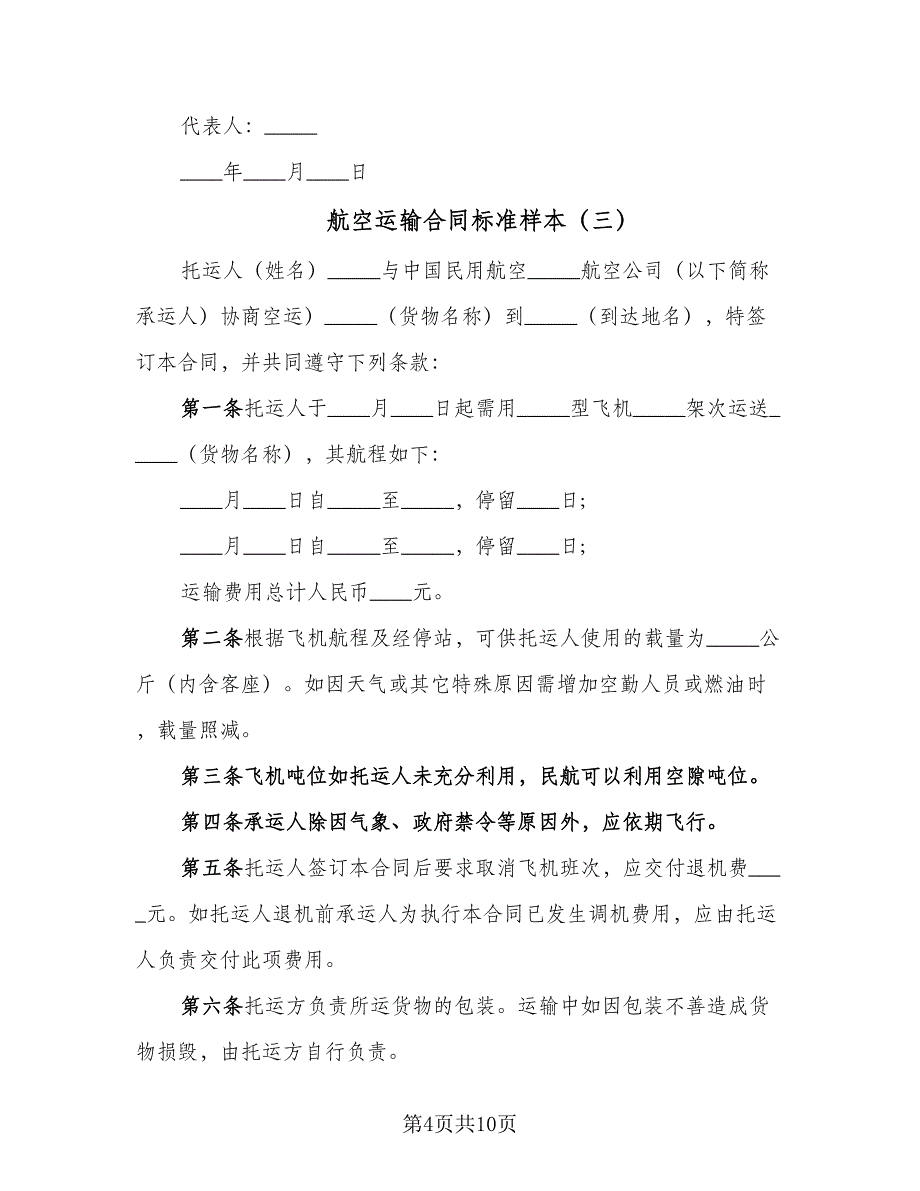 代表人：_____
____年____月____日
航空运输合同标准样本（三）
托运人（姓名）_____与中国民用航空_____航空公司（以下简称
承运人）协商空运）_____（货物名称）到_____（到达地名），特签
订本合同，并共同遵守下列条款：
第一条托运人于____月____日起需用_____型飞机_____架次运送_
____（货物名称），其航程如下：
____月____日自_____至_____，停留____日；
____月____日自_____至_____，停留____日；
运输费用总计人民币____元。
第二条根据飞机航程及经停站，可供托运人使用的载量为_____公
斤（内含客座）。如因天气或其它特殊原因需增加空勤人员或燃油时
，载量照减。
第三条飞机吨位如托运人未充分利用，民航可以利用空隙吨位。
第四条承运人除因气象、政府禁令等原因外，应依期飞行。
第五条托运人签订本合同后要求取消飞机班次，应交付退机费___
_元。如托运人退机前承运人为执行本合同已发生调机费用，应由托运
人负责交付此项费用。
第六条托运方负责所运货物的包装。运输中如因包装不善造成货
物损毁，由托运方自行负责。
第4页共10页